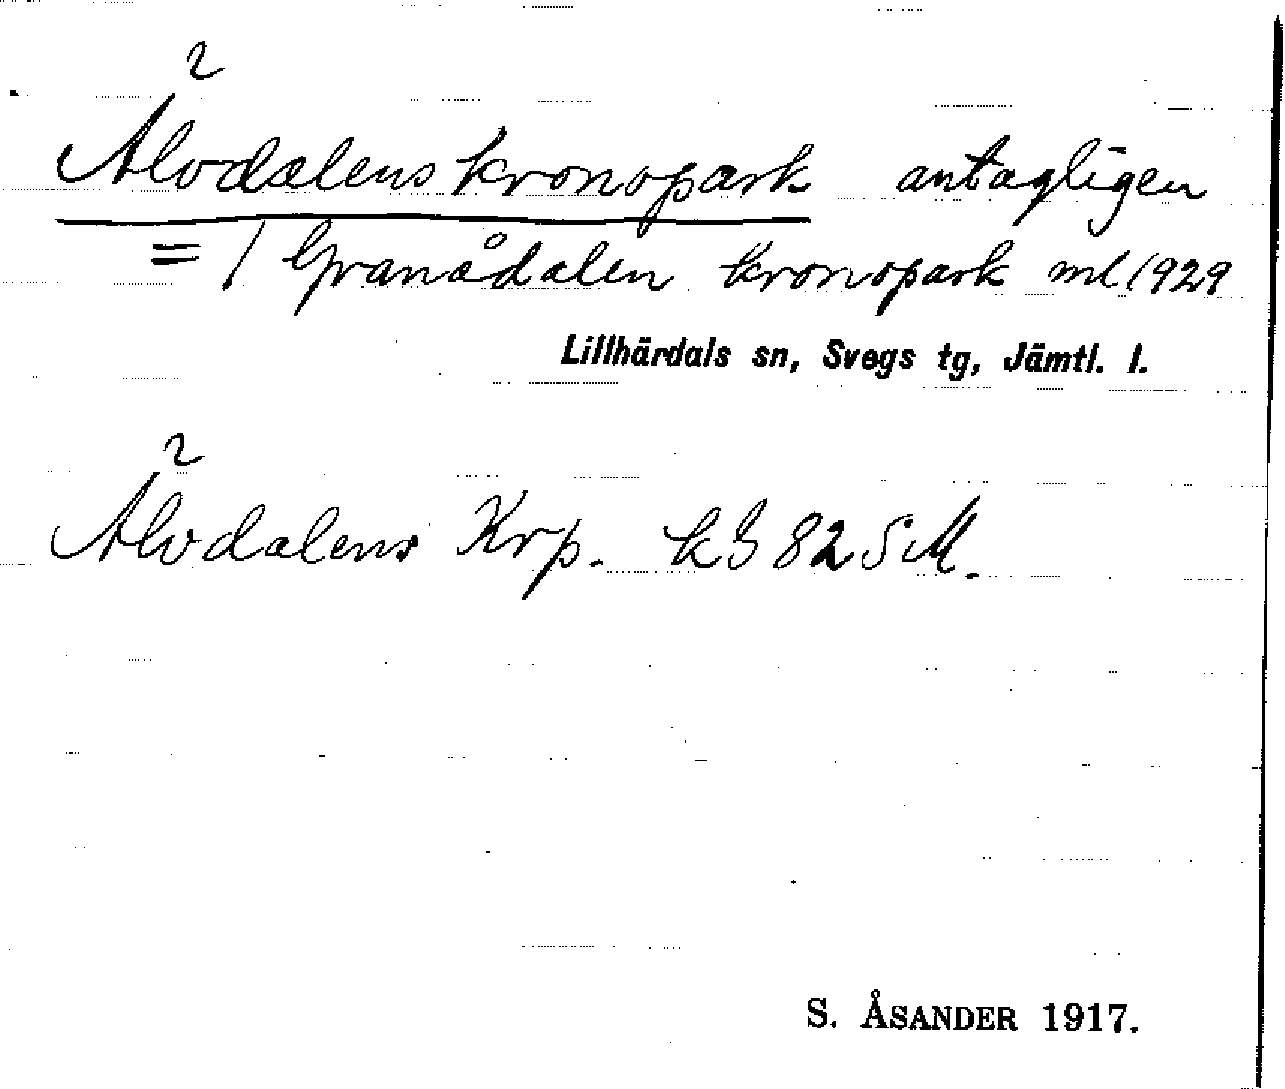 Älvdalens kronopark antagligen
= / Granådalen kronopark ml 1929
Lillhärdals sn, Svegs tg, Jämtl. l.
Älvdalens Krp. kb 82 SM.
S. ÅSANDER 1917.